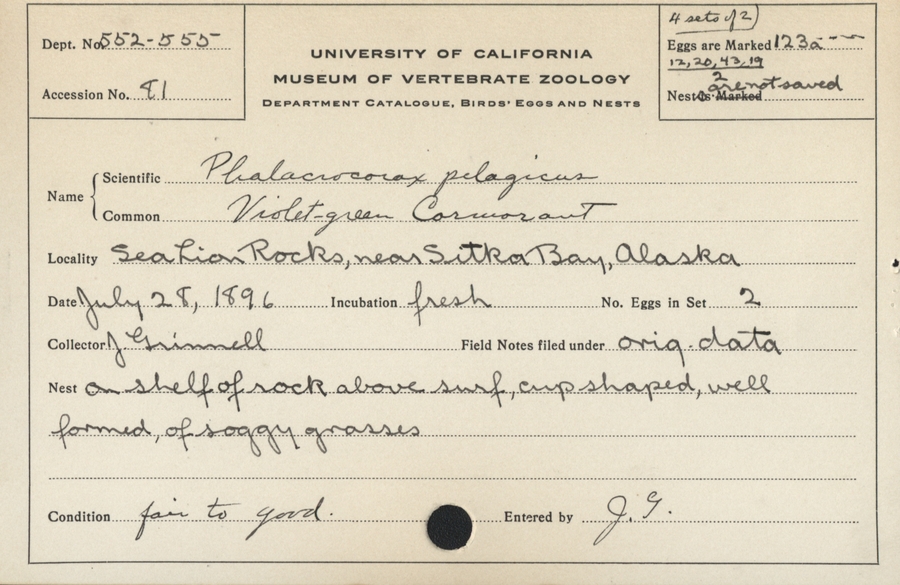 4 sets of 2)
Dept. No. 552-555
UNIVERSITY OF CALIFORNIA
Eggs are Marked 123a ----
12, 20, 43, 19
MUSEUM OF VERTEBRATE ZOOLOGY
2 are not saved
Accession No. 81
DEPARTMENT CATALOGUE, BIRDS' EGGS AND NESTS
Nests is Marked
Name
Scientific Phalacrocorax pelagicus
Common Violet-green Cormorant
Locality Sea Lion Rocks, near Sitka Bay, Alaska
Date July 28, 1896 Incubation fresh No. Eggs in Set 2
Collector J Grinnell Field Notes filed under orig. data
Nest on shelf of rock above surf, cup shaped, well
formed, of soggy grasses
Condition fair to good. Entered by J. G.